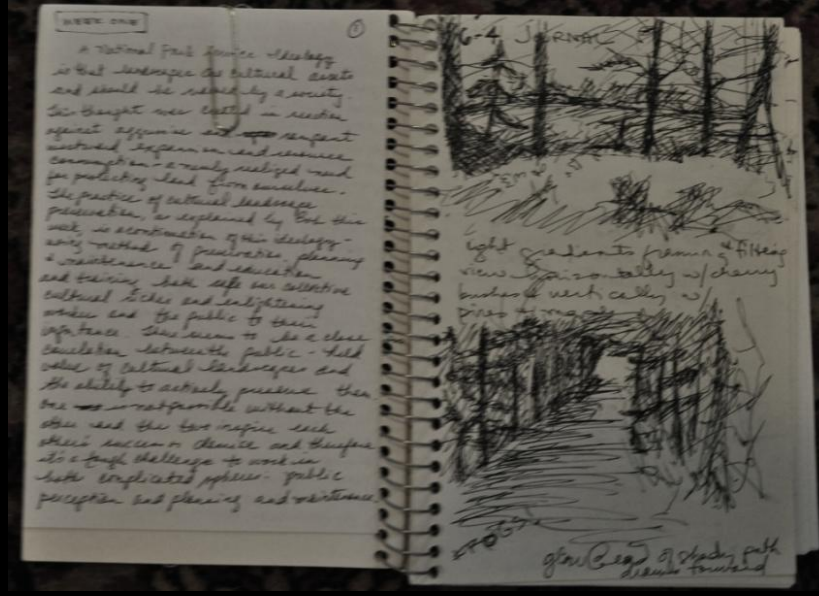 WEEK ONE
1
A National Park Service ideology
is that landscapes are cultural assets
and should be valued by a society.
This thought was created in reaction
against aggressive rampant
westward expansion and resource
consumption - a newly realized need
for protecting land from ourselves.
The practice of cultural landscape
preservation, as explained by Bob this
week, is a continuation of this ideology -
using methods of preservation planning
& maintenance and education
and training both safe our collective
cultural riches and enlightening
worker and the public to their
importance. There seems to be a close
correlation between the public-held
value of cultural landscapes and
the ability to actually preserve them
one is not possible without the
other and the two inspire each
other's success or demise and therefore
it's a tough challenge to work in
both complicated spheres - public
perception and planning and maintenance.
6-4 JOURNAL
light gradients framing & filtering
view horizontally w/ cherry
bushes & vertically w/
pines &
glow @ end of shady path
draws forward